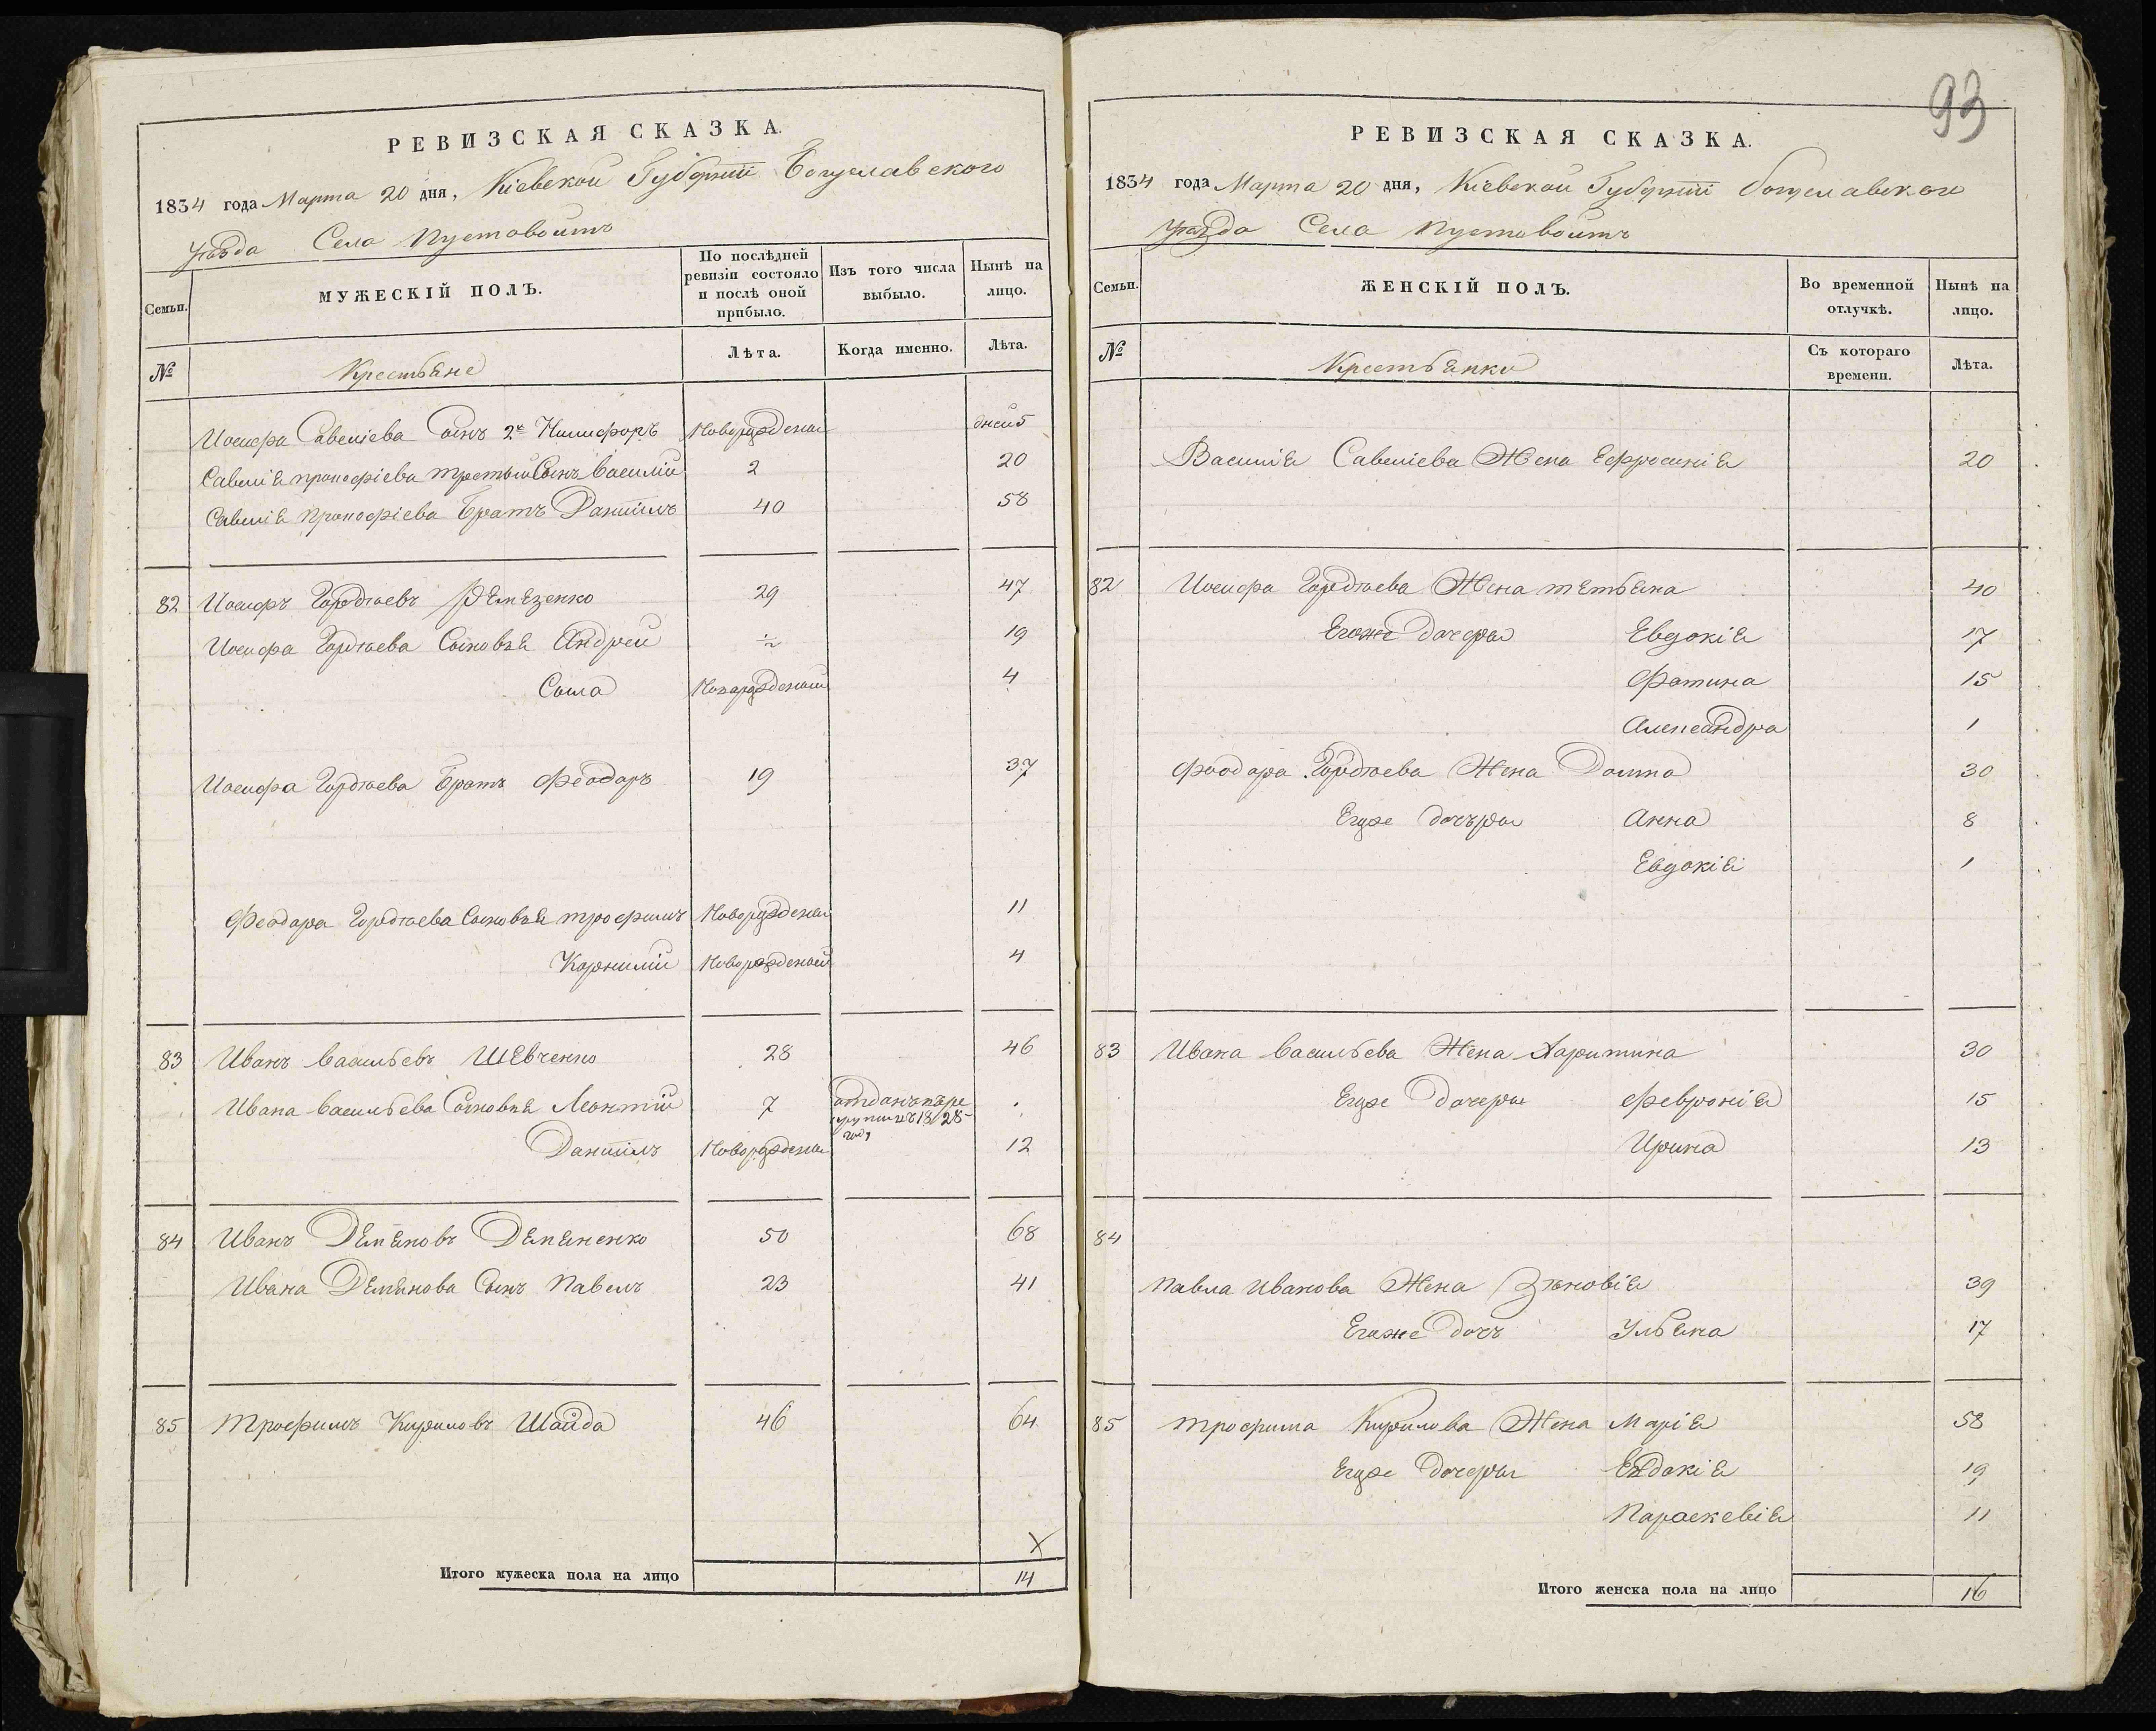 РЕВИЗСКАЯ СКАЗКА.
1834 года Марта 20 дня, Кіевской Губерніи Богуславского
уѣзда Села Пустовойтъ
Семьи.
МУЖЕСКІЙ ПОЛЪ.
По послѣдней ревизіи состояло и послѣ оной прибыло.
Изъ того числа выбыло.
Нынѣ на лицо.
№
Крестьяне
Лѣта.
Когда именно.
Лѣта.
Иосифа Савеліева Сынъ 2й Никифоръ Новорожденый дней 5
Савелія прокофіева третьий Сынъ Василій 2 20
Савелія прокофіева Братъ Даніилъ 40 58
82 Иосифъ Гордѣевъ 29 47
Иосифа Гордѣева Сыновья Андрей 19
Савa Новорожденый 4
Иосифа Гордѣева Братъ Феодоръ 19 37
Феодора Гордѣева Сыновья трофимъ Новорожденый 11
Корнилій Новорожденый 4
83 Иванъ Васильевъ Шевченко 28 46
Ивана Васильева Сыновья Леонтій 7 отданъ въ рекруты въ 1828 году
Даніилъ Новорожденый 12
84 Иванъ Демяновъ Демяненко 50 68
Ивана Демянова Сынъ Павелъ 23 41
85 Трофимъ Кириловъ Шайда 46 64
Х
Итого мужеска пола на лицо 14
93
РЕВИЗСКАЯ СКАЗКА.
1834 года Марта 20 дня, Кіевской Губерніи богуславского
уѣзда Села Пустовойтъ
Семьи.
ЖЕНСКІЙ ПОЛЪ.
Во временной отлучкѣ.
Нынѣ на лицо.
№
Крестьянки
Съ котораго времени.
Лѣта.
Василія Савеліева Жена Ефросинія 20
82 Иосифа Гордѣева Жена тетьяна 40
Егоже дочеры Евдокія 17
Фотина 15
Александра 1
Феодора Гордѣева Жена Домна 30
Егоже дочеры Анна 8
Евдокія 1
83 Ивана Васильева Жена Харитина 30
Егоже Дочеры Февронія 15
Ирина 13
84
Павла Иванова Жена Зѣновія 39
Егоже Дочъ Ульяна 17
85 трофима Кирилова Жена Марія 58
Егоже Дочеры Евдокія 19
Параскевія 11
Итого женска пола на лицо 16